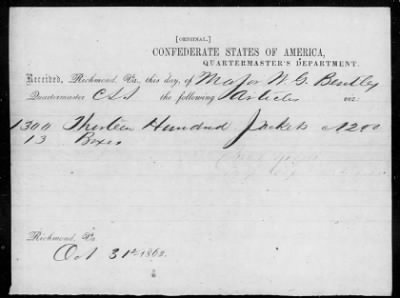 [ORIGINAL.]
CONFEDERATE STATES OF AMERICA,
QUARTERMASTER'S DEPARTMENT.
Received, Richmond, Va., this day, of Major W. G. Bentley
Quartermaster CSA the following Articles viz:
1300 Thirteen Hundred Jackets
13 Boxes
Richmond, Va
Oct 31st 1862.